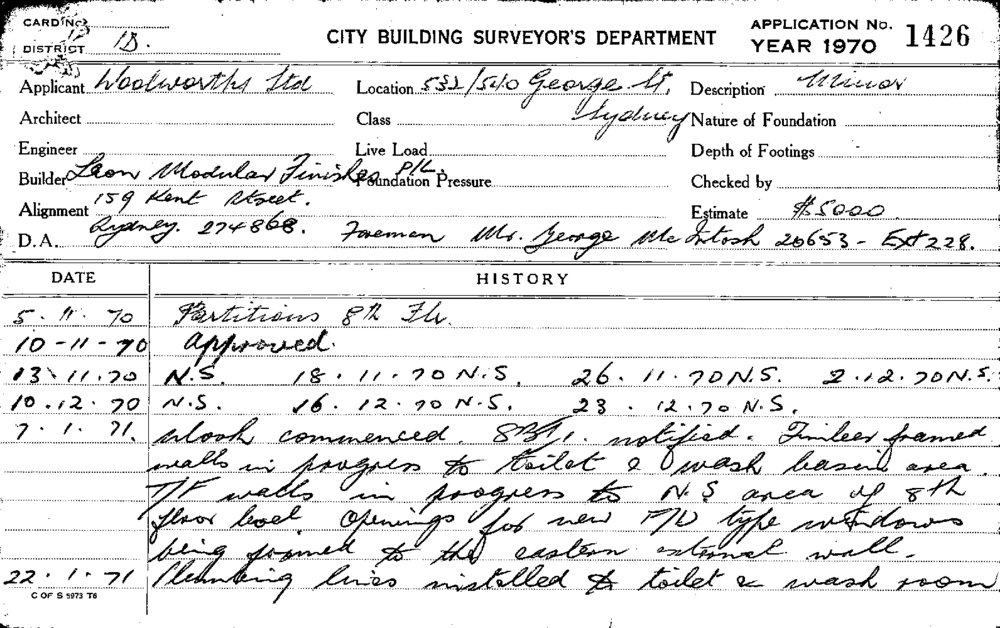 CARD No.
DISTRICT 1B.
CITY BUILDING SURVEYOR'S DEPARTMENT
APPLICATION No. 1426
YEAR 1970
Applicant Woolworths Ltd Location 532/540 George St, Sydney Description Minor
Architect Class Nature of Foundation
Engineer Live Load Depth of Footings
Builder Leon Modular Finishes P/L. Foundation Pressure Checked by
Alignment 159 Kent Street. Estimate $5000
D.A. Sydney. 274868. Foreman Mr. George McIntosh 20653 - Ext 228.
DATE HISTORY
5. 11. 70 Partitions 8th Flr.
10-11-70 Approved.
13. 11. 70 N.S. 18. 11. 70 N.S. 26. 11. 70 N.S. 2. 12. 70 N.S.
10. 12. 70 N.S. 16. 12. 70 N.S. 23. 12. 70 N.S.
7. 1. 71. Work commenced. notified. Timber framed
walls in progress to toilet & wash basin area.
T/F walls in progress to N.S area of 8th
floor level. Openings for new type windows
being formed to the eastern external wall.
22. 1. 71 Plumbing lines installed to toilet & wash room
C OF S 5973 T6